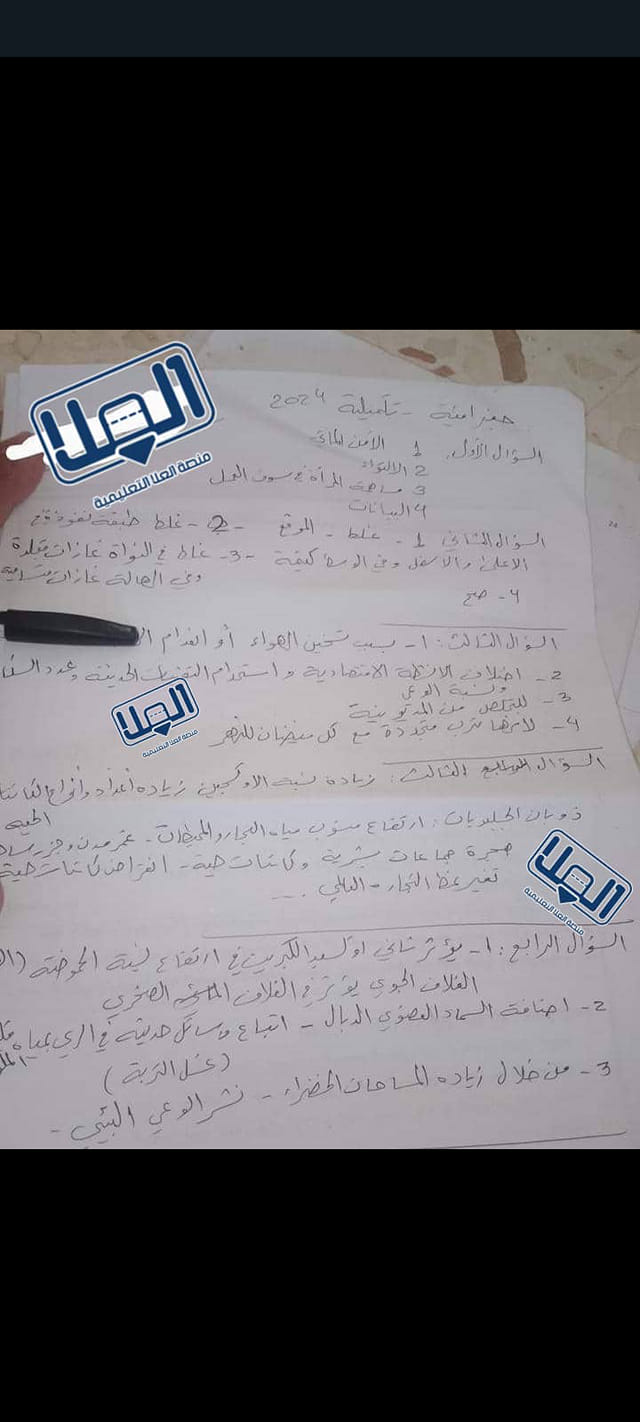 العلا
منصة العلا التعليمية
جغرافية - تكميلية 2024
السؤال الأول: 1 الأمن المائي
2 الالتواء
3 مساهمة المرأة في سوق العمل
4 البيانات
السؤال الثاني 1 - غلط - الموقع - 2 - غلط طبقة نفوذة في
الاعلى والأسفل وفي الوسط كتيمة - 3 - غلط في النواة غازات متجمدة
وفي الهالة غازات
4 - صح
السؤال الثالث: 1 - بسبب تسخين الهواء أو انعدام
2 - اختلاف الانظمة الاقتصادية واستخدام التقنيات الحديثة وعدد
ونسبة الوعي
3 - للتخلص من المديونية
4 - لانها ترب متجددة مع كل فيضان للنهر
العلا
منصة العلا التعليمية
السؤال الثالث: زيادة نسبة الاوكسجين زيادة أعداد وأنواع
الحية
ذوبان الجليديات: ارتفاع منسوب مياه البحار والمحيطات - غمر مدن وجزر
هجرة جماعات بشرية وكائنات حية - انقراض كائنات حية
تغير خط التجار -
العلا
منصة العلا التعليمية
السؤال الرابع: 1 - يؤثر ثاني اوكسيد الكبريت في ارتفاع نسبة الحموضة
الغلاف الجوي يؤثر في الغلاف الصخري
2 - اضافة السماد العضوي الدبال - اتباع وسائل حديثة في الري بمياه
(غسل التربة)
3 - من خلال زيادة المساحات الخضراء - نشر الوعي البيئي -